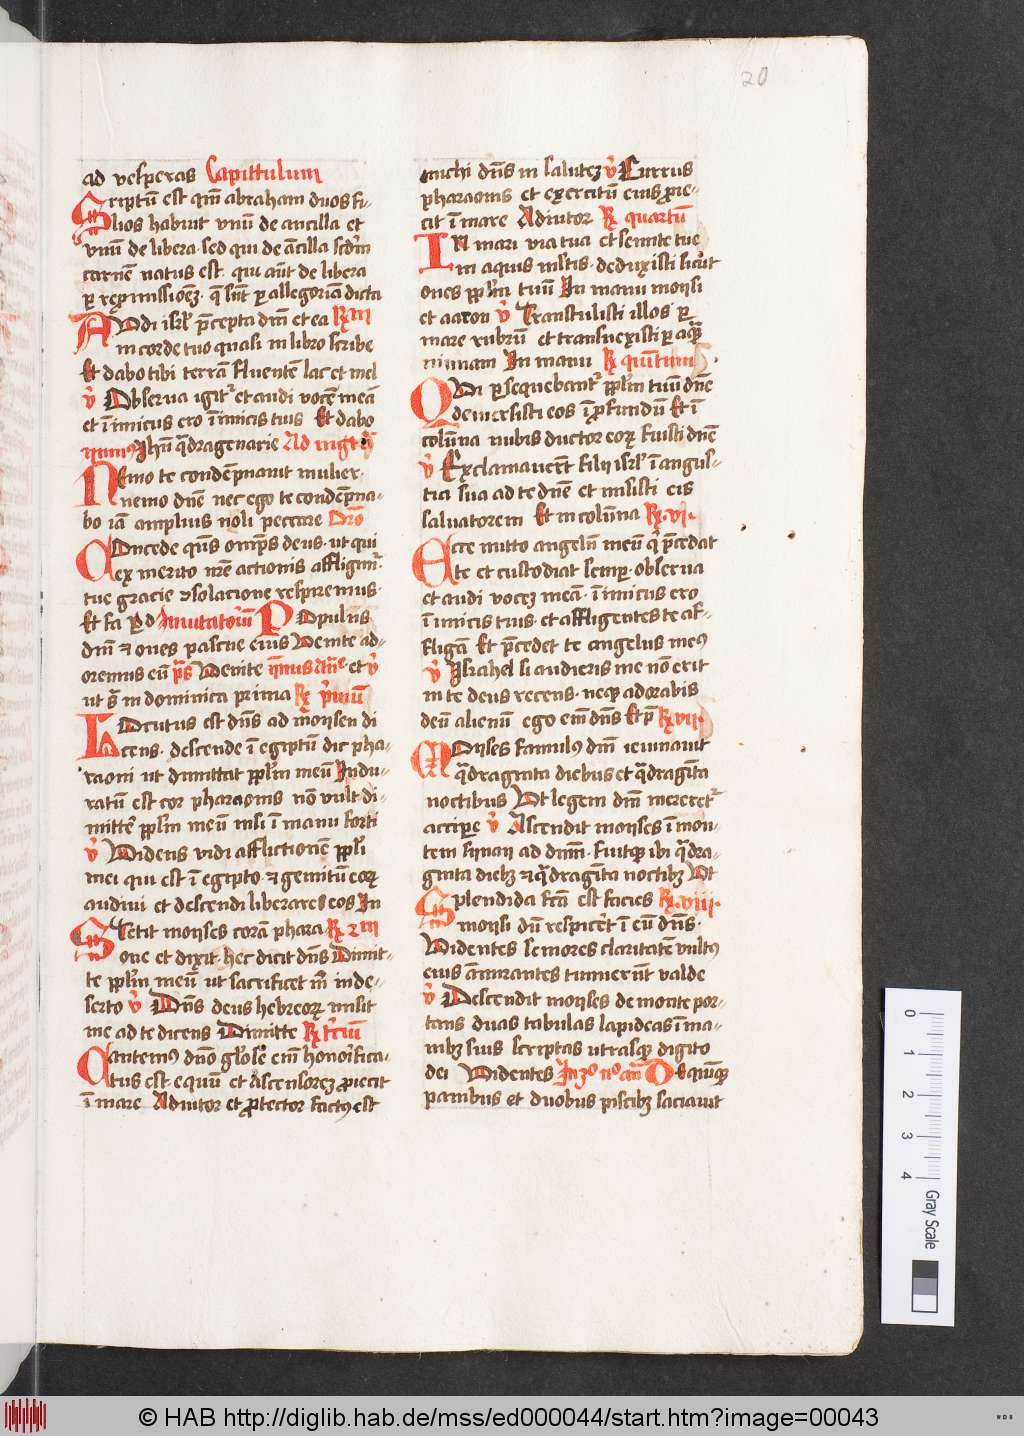 20
ad vesperas Capittulum
Scriptū est qm̄ abraham duos fi-
lios habuit vnū de ancilla et
vnū de libera sed qui de ācilla scdm̄
carnē natus est qui aūt de libera
ꝑ reꝓmissionē · q̄ sūt ꝑ allegoriā dicta
AUdi isrl̄ p̄cepta dn̄i et ea R̄ m
in corde tuo quasi in libro scribe
Et dabo tibi terrā fluentē lac et mel
v̄ Obserua igitᷣ et audi vocē meā
et inimicus ero inimicis tuis Et dabo
ymnus Jhū q̄dragenarie Ad mgt̄
NEmo te condēpnauit mulier·
nemo dn̄e nec ego te condēpna-
bo iā amplius noli peccare Orō
COncede qūs omp̄s deus · ut qui
ex merito nr̄e actionis affligimᷣ·
tue gracie ꝯsolacione respiremus·
Et fa Inuitatoriū POpulus
dn̄i ⁊ oues pascue eius Venite ad-
oremus eū ps̄ Venite et v̄
ut s̄ in dominica prima R̄ p̄mū
LOcutus est dn̄s ad moysen di
cens · descende ī egiptū dic pha-
raoni ut dimittat ppl̄m meū Indu-
ratū est cor pharaonis nō vult di-
mittē ppl̄m meū nisi ī manu forti
v̄ Videns vidi afflictionē ppl̄i
mei qui est ī egipto · ⁊ gemitū eoꝝ
audiui et descendi liberare eos In
STetit moyses corā phara- R̄ ⁊m
one et dixit · hec dicit dn̄s Dimit-
te ppl̄m meū ut sacrificet m̄ in de-
serto v̄ Dn̄s deus hebreoꝝ misit
me ad te dicens Dimitte R̄ t̄ciū
Cantemꝰ dn̄o gl̄ose em̄ honorifica-
tus est · equū et ascensorē ꝓiecit
ī mare Adiutor et ꝓtector factꝰ est
michi dn̄s in salutē v̄ Currus
pharaonis et exercitū eius ꝓie-
cit ī mare Adiutor R̄ quartū
IN mari via tua et semite tue
in aquis mltis · deduxisti sicut
oues ppl̄m tuū In manu moysi
et aaron v̄ Transtulisti illos ꝑ
mare rubrū et transuexisti ꝑ aquā
nimiam In manu R̄ quītum
QUi ꝑsequebantᷣ ppl̄m tuū dn̄e
demersisti eos ī ꝓfundū Et ī
colūna nubis ductor eoꝝ fuisti dn̄e
v̄ Exclamauerūt filij isrl̄ ī angus-
tia sua ad te dn̄e et misisti eis
saluatorem Et in colūna R̄ · vj ·
ECce mitto angelū meū qͥ p̄cedat
te et custodiat semꝑ · obserua
et audi vocē meā · inimicus ero
inimicis tuis · et affligentes te af-
fligā Et p̄cedet te angelus meꝰ
v̄ Israhel si audieris me non erit
in te deus recens · neqꝫ adorabis
deū alienū ego em̄ dn̄s Et p̄ R̄ vij
MOyses famulꝰ dn̄i ieiunauit
q̄dragīta diebus et q̄dragīta
noctibus Vt legem dn̄i mereretᷣ
accipere v̄ Ascendit moyses ī mon-
tem synay ad dn̄m · fuitqꝫ ibi q̄dra-
gīta diebꝫ ⁊ q̄dragīta noctibꝫ Vt
SPlendida fcā est facies R̄ · viij ·
moysi dū respiceret ī eū dn̄s ·
Videntes seniores claritatē vultꝰ
eius āmirantes timuerūt valde
v̄ Descendit moyses de monte por-
tans duas tabulas lapideas ī ma-
nibꝫ suis scriptas utrasqꝫ digito
dei Videntes In Jo no an̄ DE quīqꝫ
panibus et duobus piscibꝫ saciauit
0 1 2 3 4
Gray Scale
© HAB http://diglib.hab.de/mss/ed000044/start.htm?image=00043